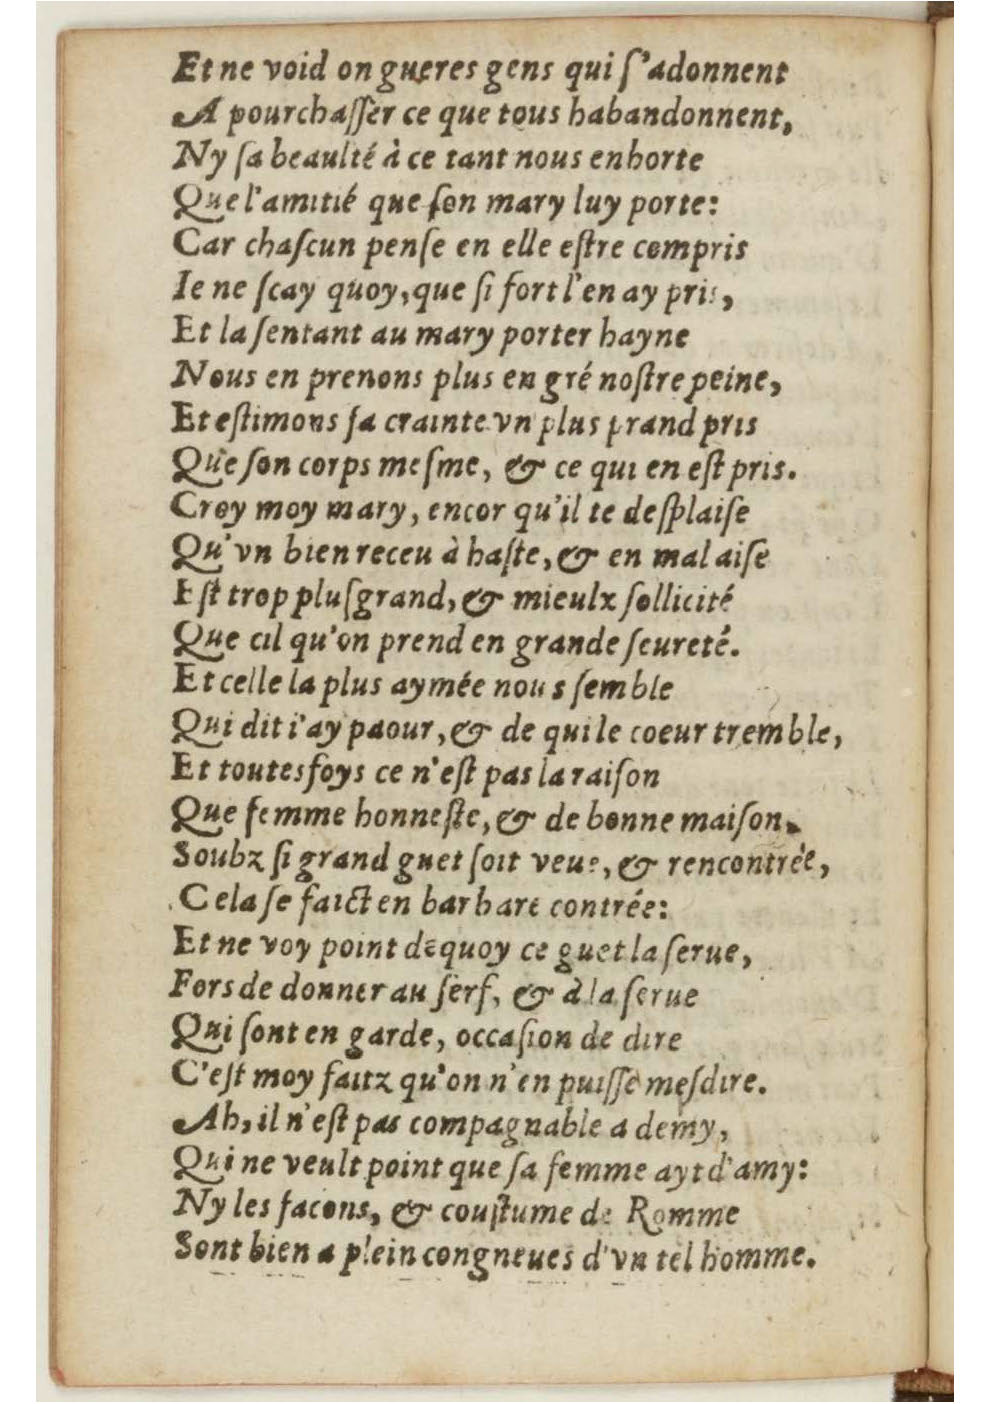 Et ne void on gueres gens qui ſ'adonnent
A pourchaſſer ce que tous habandonnent,
Ny ſa beaulté à ce tant nous enhorte
Que l'amitié que ſon mary luy porte:
Car chaſcun penſe en elle eſtre compris
Ie ne ſcay quoy, que ſi fort l'en ay pris,
Et la ſentant au mary porter hayne
Nous en prenons plus en gré noſtre peine,
Et eſtimons ſa crainte vn plus prand pris
Que ſon corps meſme, & ce qui en eſt pris.
Croy moy mary, encor qu'il te deſplaiſe
Qu'vn bien receu à haſte, & en mal aiſe
Eſt trop pluſgrand, & mieulx ſollicité
Que cil qu'on prend en grande ſeureté.
Et celle la plus aymée nous ſemble
Qui dit i'ay paour, & de qui le coeur tremble,
Et toutesfoys ce n'eſt pas la raiſon
Que femme honneſte, & de bonne maiſon,
Soubz ſi grand guet ſoit veue, & rencontrée,
Cela ſe faict en barbare contrée:
Et ne voy point dequoy ce guet la ſerue,
Fors de donner au ſerf, & à la ſerue
Qui ſont en garde, occaſion de dire
C'eſt moy faitz qu'on n'en puiſſe meſdire.
Ah, il n'eſt pas compagnable a demy,
Qui ne veult point que ſa femme ayt d'amy:
Ny les facons, & couſtume de Romme
Sont bien a plein congneues d'vn tel homme.